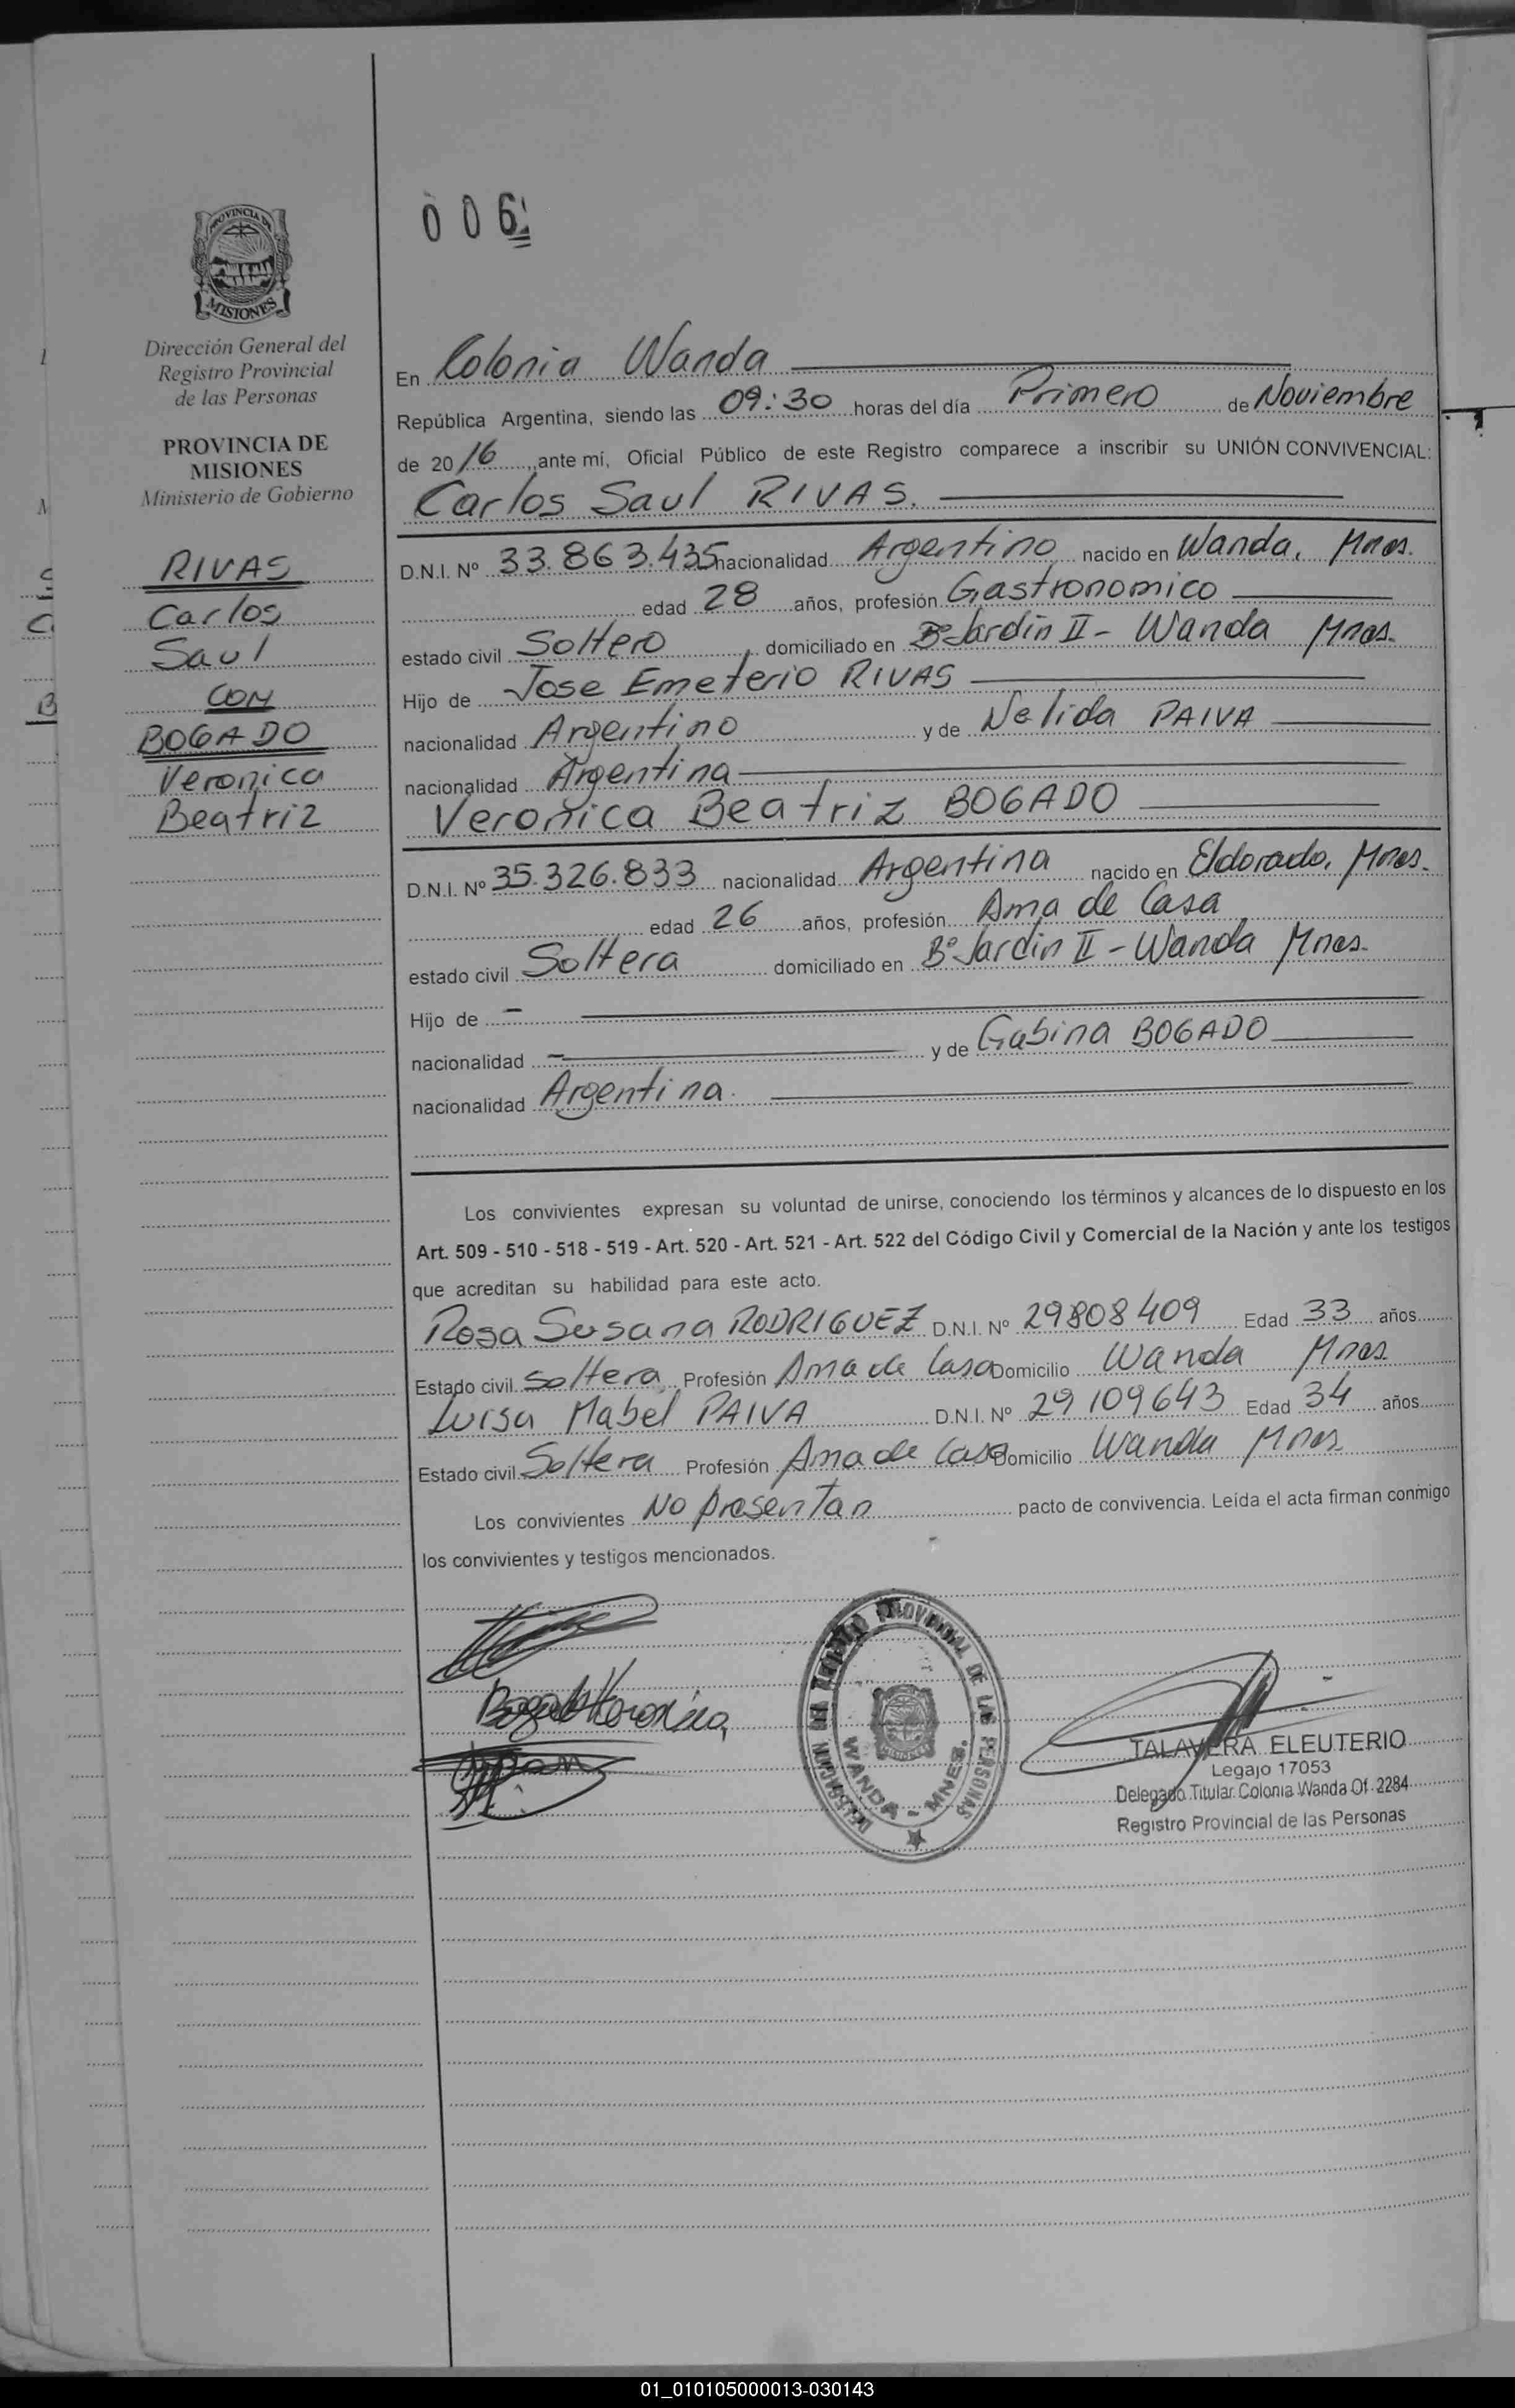 006
PROVINCIA DE
MISIONES
Dirección General del
Registro Provincial
de las Personas
PROVINCIA DE
MISIONES
Ministerio de Gobierno
RIVAS
Carlos
Saul
CON
BOGADO
Veronica
Beatriz
En Colonia Wanda
República Argentina, siendo las 09:30 horas del día Primero de Noviembre
de 2016, ante mí, Oficial Público de este Registro comparece a inscribir su UNIÓN CONVIVENCIAL:
Carlos Saul RIVAS.
D.N.I. Nº 33.863.435 nacionalidad Argentino nacido en Wanda, Mnes.
edad 28 años, profesión Gastronomico
estado civil Soltero domiciliado en Bº Jardin II - Wanda Mnes.
Hijo de Jose Emeterio RIVAS
nacionalidad Argentino y de Nelida PAIVA
nacionalidad Argentina
Veronica Beatriz BOGADO
D.N.I. Nº 35.326.833 nacionalidad Argentina nacido en Eldorado, Mnes.
edad 26 años, profesión Ama de Casa
estado civil Soltera domiciliado en Bº Jardin II - Wanda Mnes.
Hijo de -
nacionalidad - y de Gabina BOGADO
nacionalidad Argentina.
Los convivientes expresan su voluntad de unirse, conociendo los términos y alcances de lo dispuesto en los
Art. 509 - 510 - 518 - 519 - Art. 520 - Art. 521 - Art. 522 del Código Civil y Comercial de la Nación y ante los testigos
que acreditan su habilidad para este acto.
Rosa Susana RODRIGUEZ D.N.I. Nº 29808409 Edad 33 años
Estado civil Soltera Profesión Ama de Casa Domicilio Wanda Mnes
Luisa Mabel PAIVA D.N.I. Nº 29109643 Edad 34 años
Estado civil Soltera Profesión Ama de Casa Domicilio Wanda Mnes
Los convivientes No presentan pacto de convivencia. Leída el acta firman conmigo
los convivientes y testigos mencionados.
Bogado Veronica
DELEGACION DEL REGISTRO PROVINCIAL DE LAS PERSONAS
WANDA - MNES.
TALAVERA ELEUTERIO
Legajo 17053
Delegado Titular Colonia Wanda Of. 2284
Registro Provincial de las Personas
01_010105000013-030143